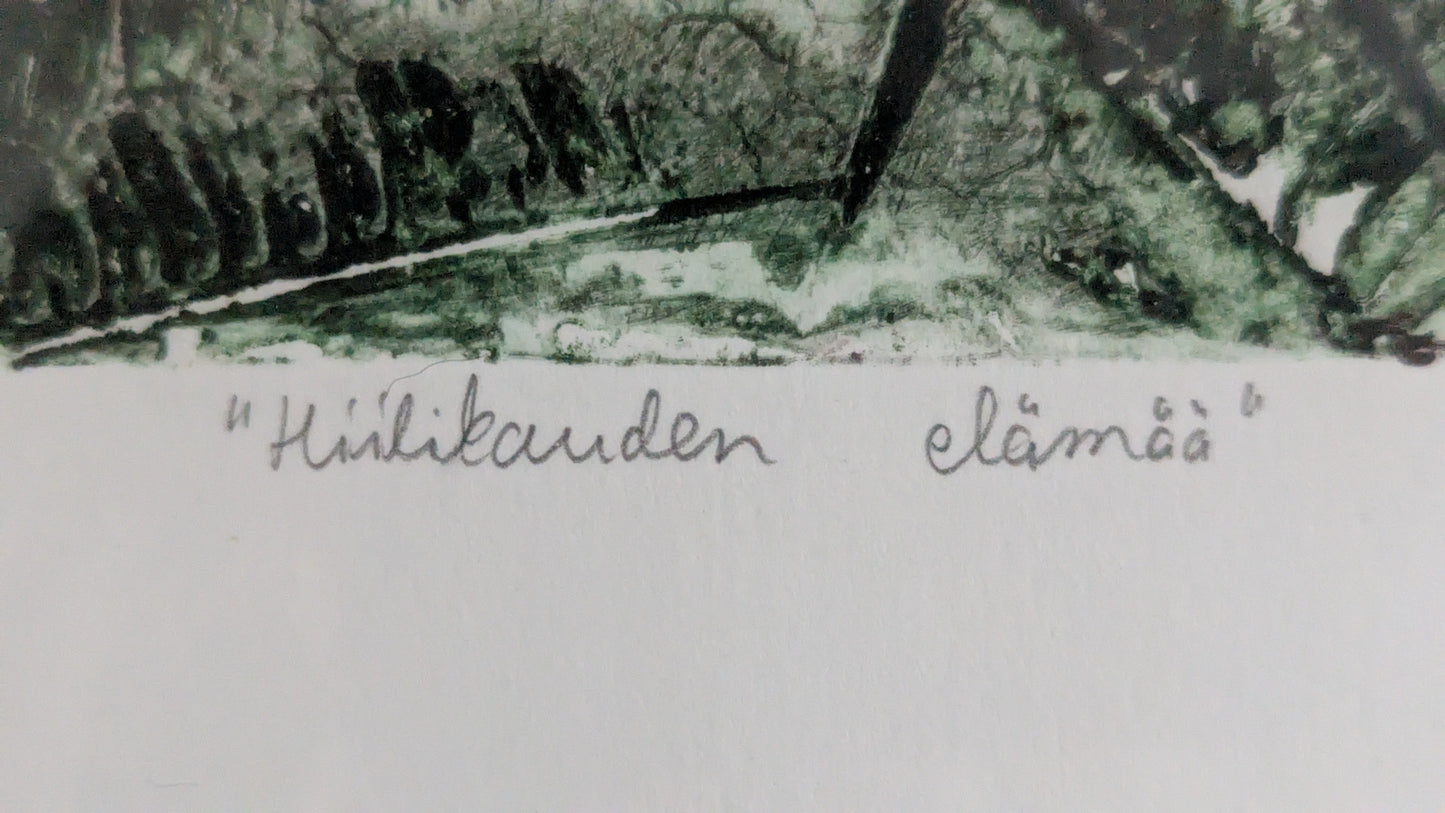 "Hiilikauden elämää"